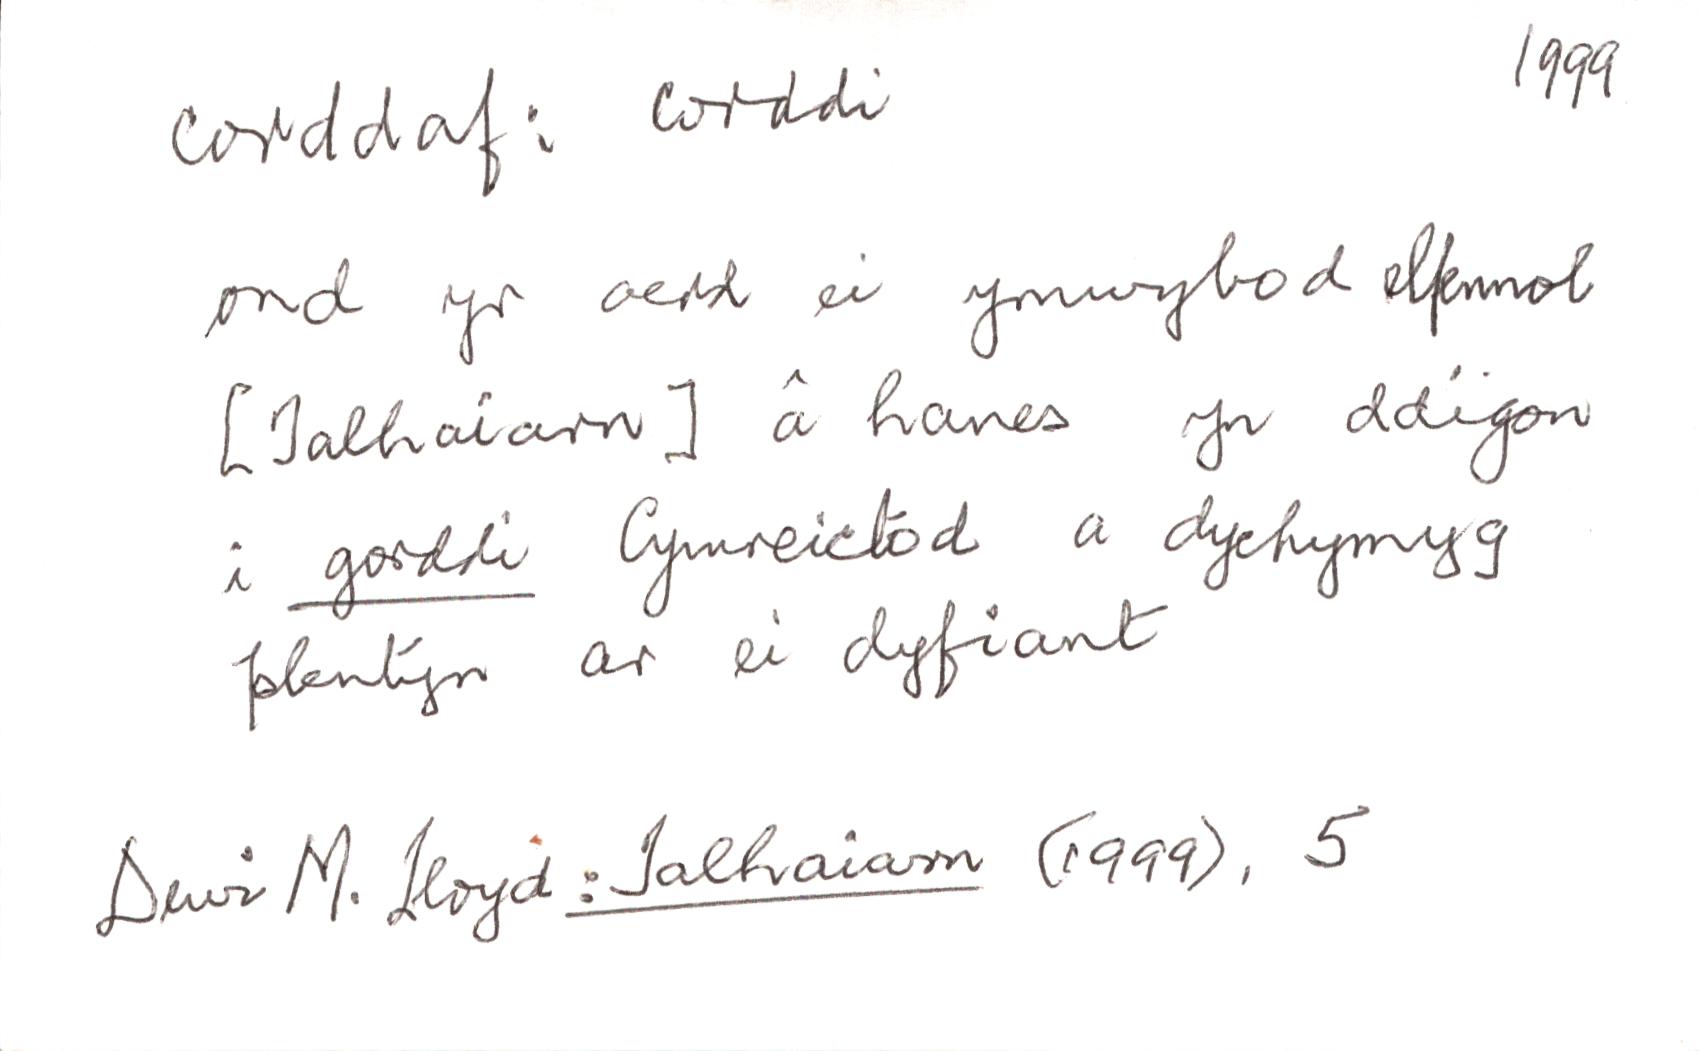 1999
corddaf: corddi
ond yr oedd ei ymwybod elfennol
[Talhaiarn] â hanes yn ddigon
i gorddi Cymreictod a dychymyg
plentyn ar ei dyfiant
Dewi M. Lloyd: Talhaiarn (1999), 5